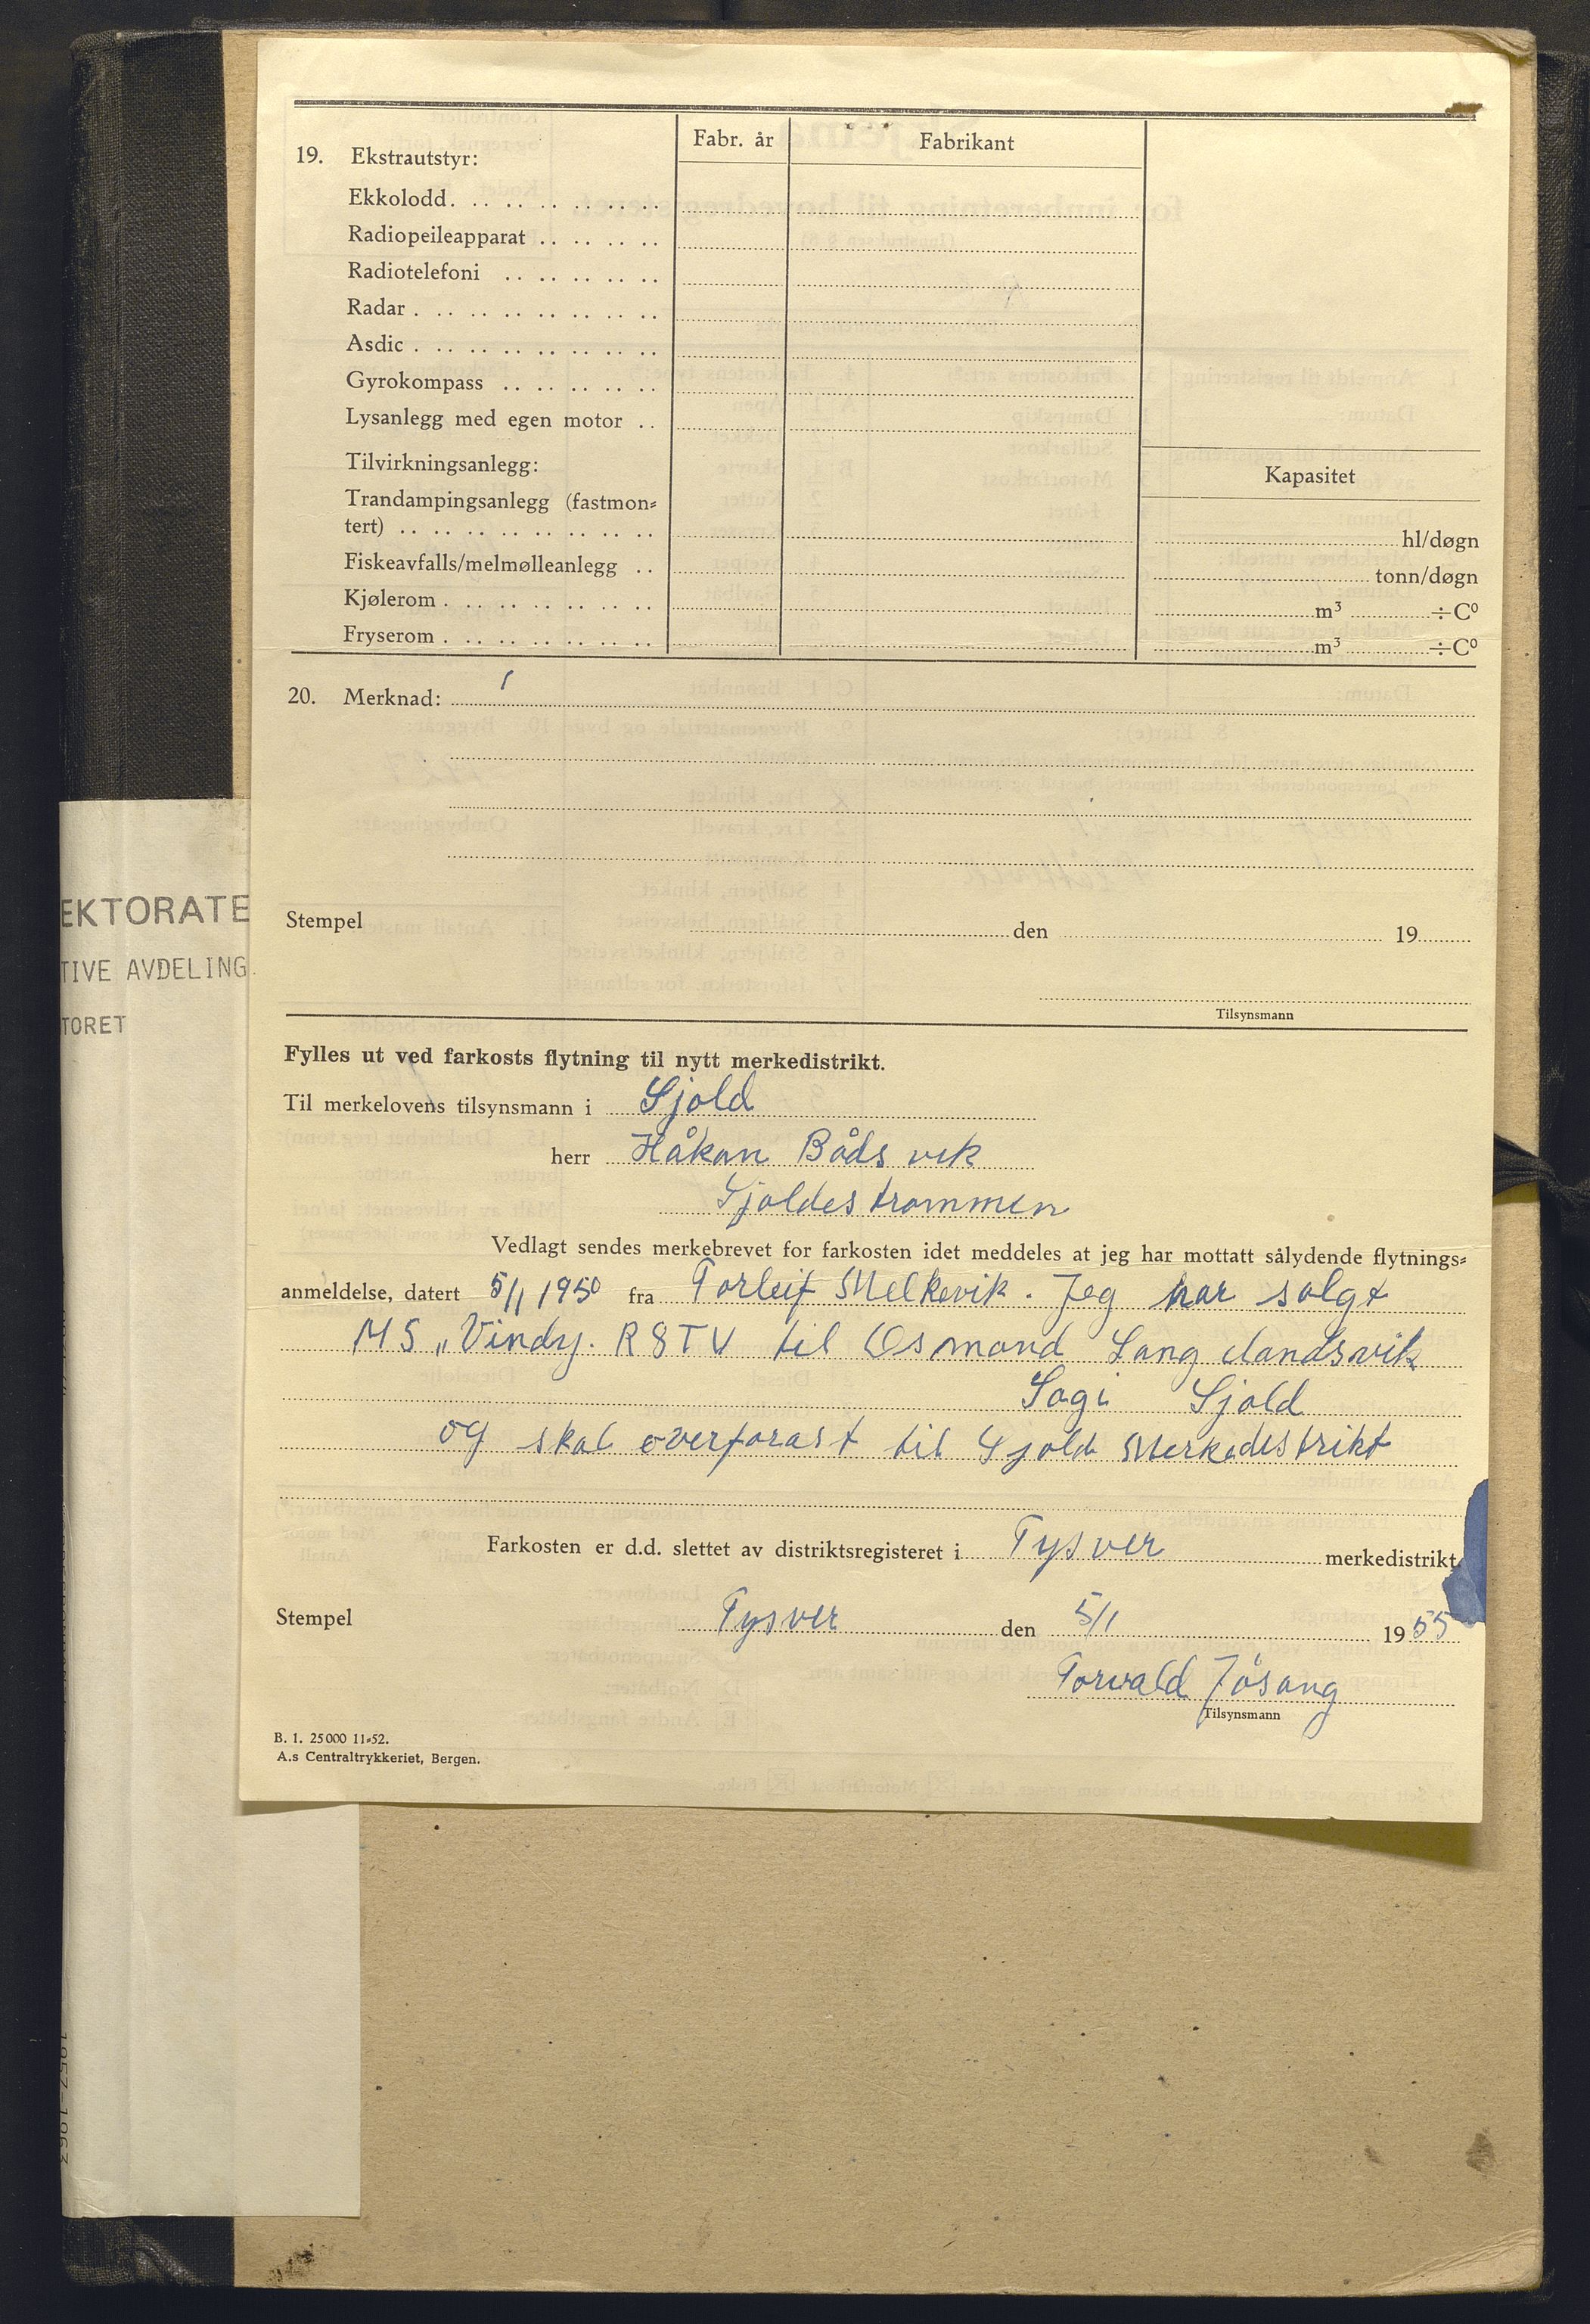 Fabr. år Fabrikant
19. Ekstrautstyr:
Ekkolodd. . .. .. .. .. .. .. ..
Radiopeileapparat .. .. .. ..
Radiotelefoni .. .. .. .. ..
Radar . .. .. .. .. .. .. .. ..
Asdic . .. .. .. .. .. .. .. ..
Gyrokompass .. .. .. .. .. ..
Lysanlegg med egen motor ..
Tilvirkningsanlegg:
Kapasitet
Trandampingsanlegg (fastmon-
tert) .. .. .. .. .. .. .. .. .. .. hl/døgn
Fiskeavfalls/melmølleanlegg .. tonn/døgn
Kjølerom . .. .. .. .. .. .. .. m³ ÷C⁰
Fryserom . .. .. .. .. .. .. .. m³ ÷C⁰
20. Merknad:
EKTORATE
Stempel den 19
TIVE AVDELING
TORET
Tilsynsmann
Fylles ut ved farkosts flytning til nytt merkedistrikt.
Til merkelovens tilsynsmann i Sjold
herr Håkon Bådsvik
Sjoldestrommen
Vedlagt sendes merkebrevet for farkosten idet meddeles at jeg har mottatt sålydende flytnings-
anmeldelse, datert 5/1 1950 fra Torleif Melkevik. Jeg har solgt
MS „Vindy. R 8 TV til Osmond Lang dandsvik
Sagi Sjold
og skal overforast til Sjold Merkedistrikt
Farkosten er d.d. slettet av distriktsregisteret i Tysver merkedistrikt
Stempel Tysver den 5/1 1955
Torvald Jösang
Tilsynsmann
B. 1. 25000 11-52.
A.s Centraltrykkeriet, Bergen.
1957-1962